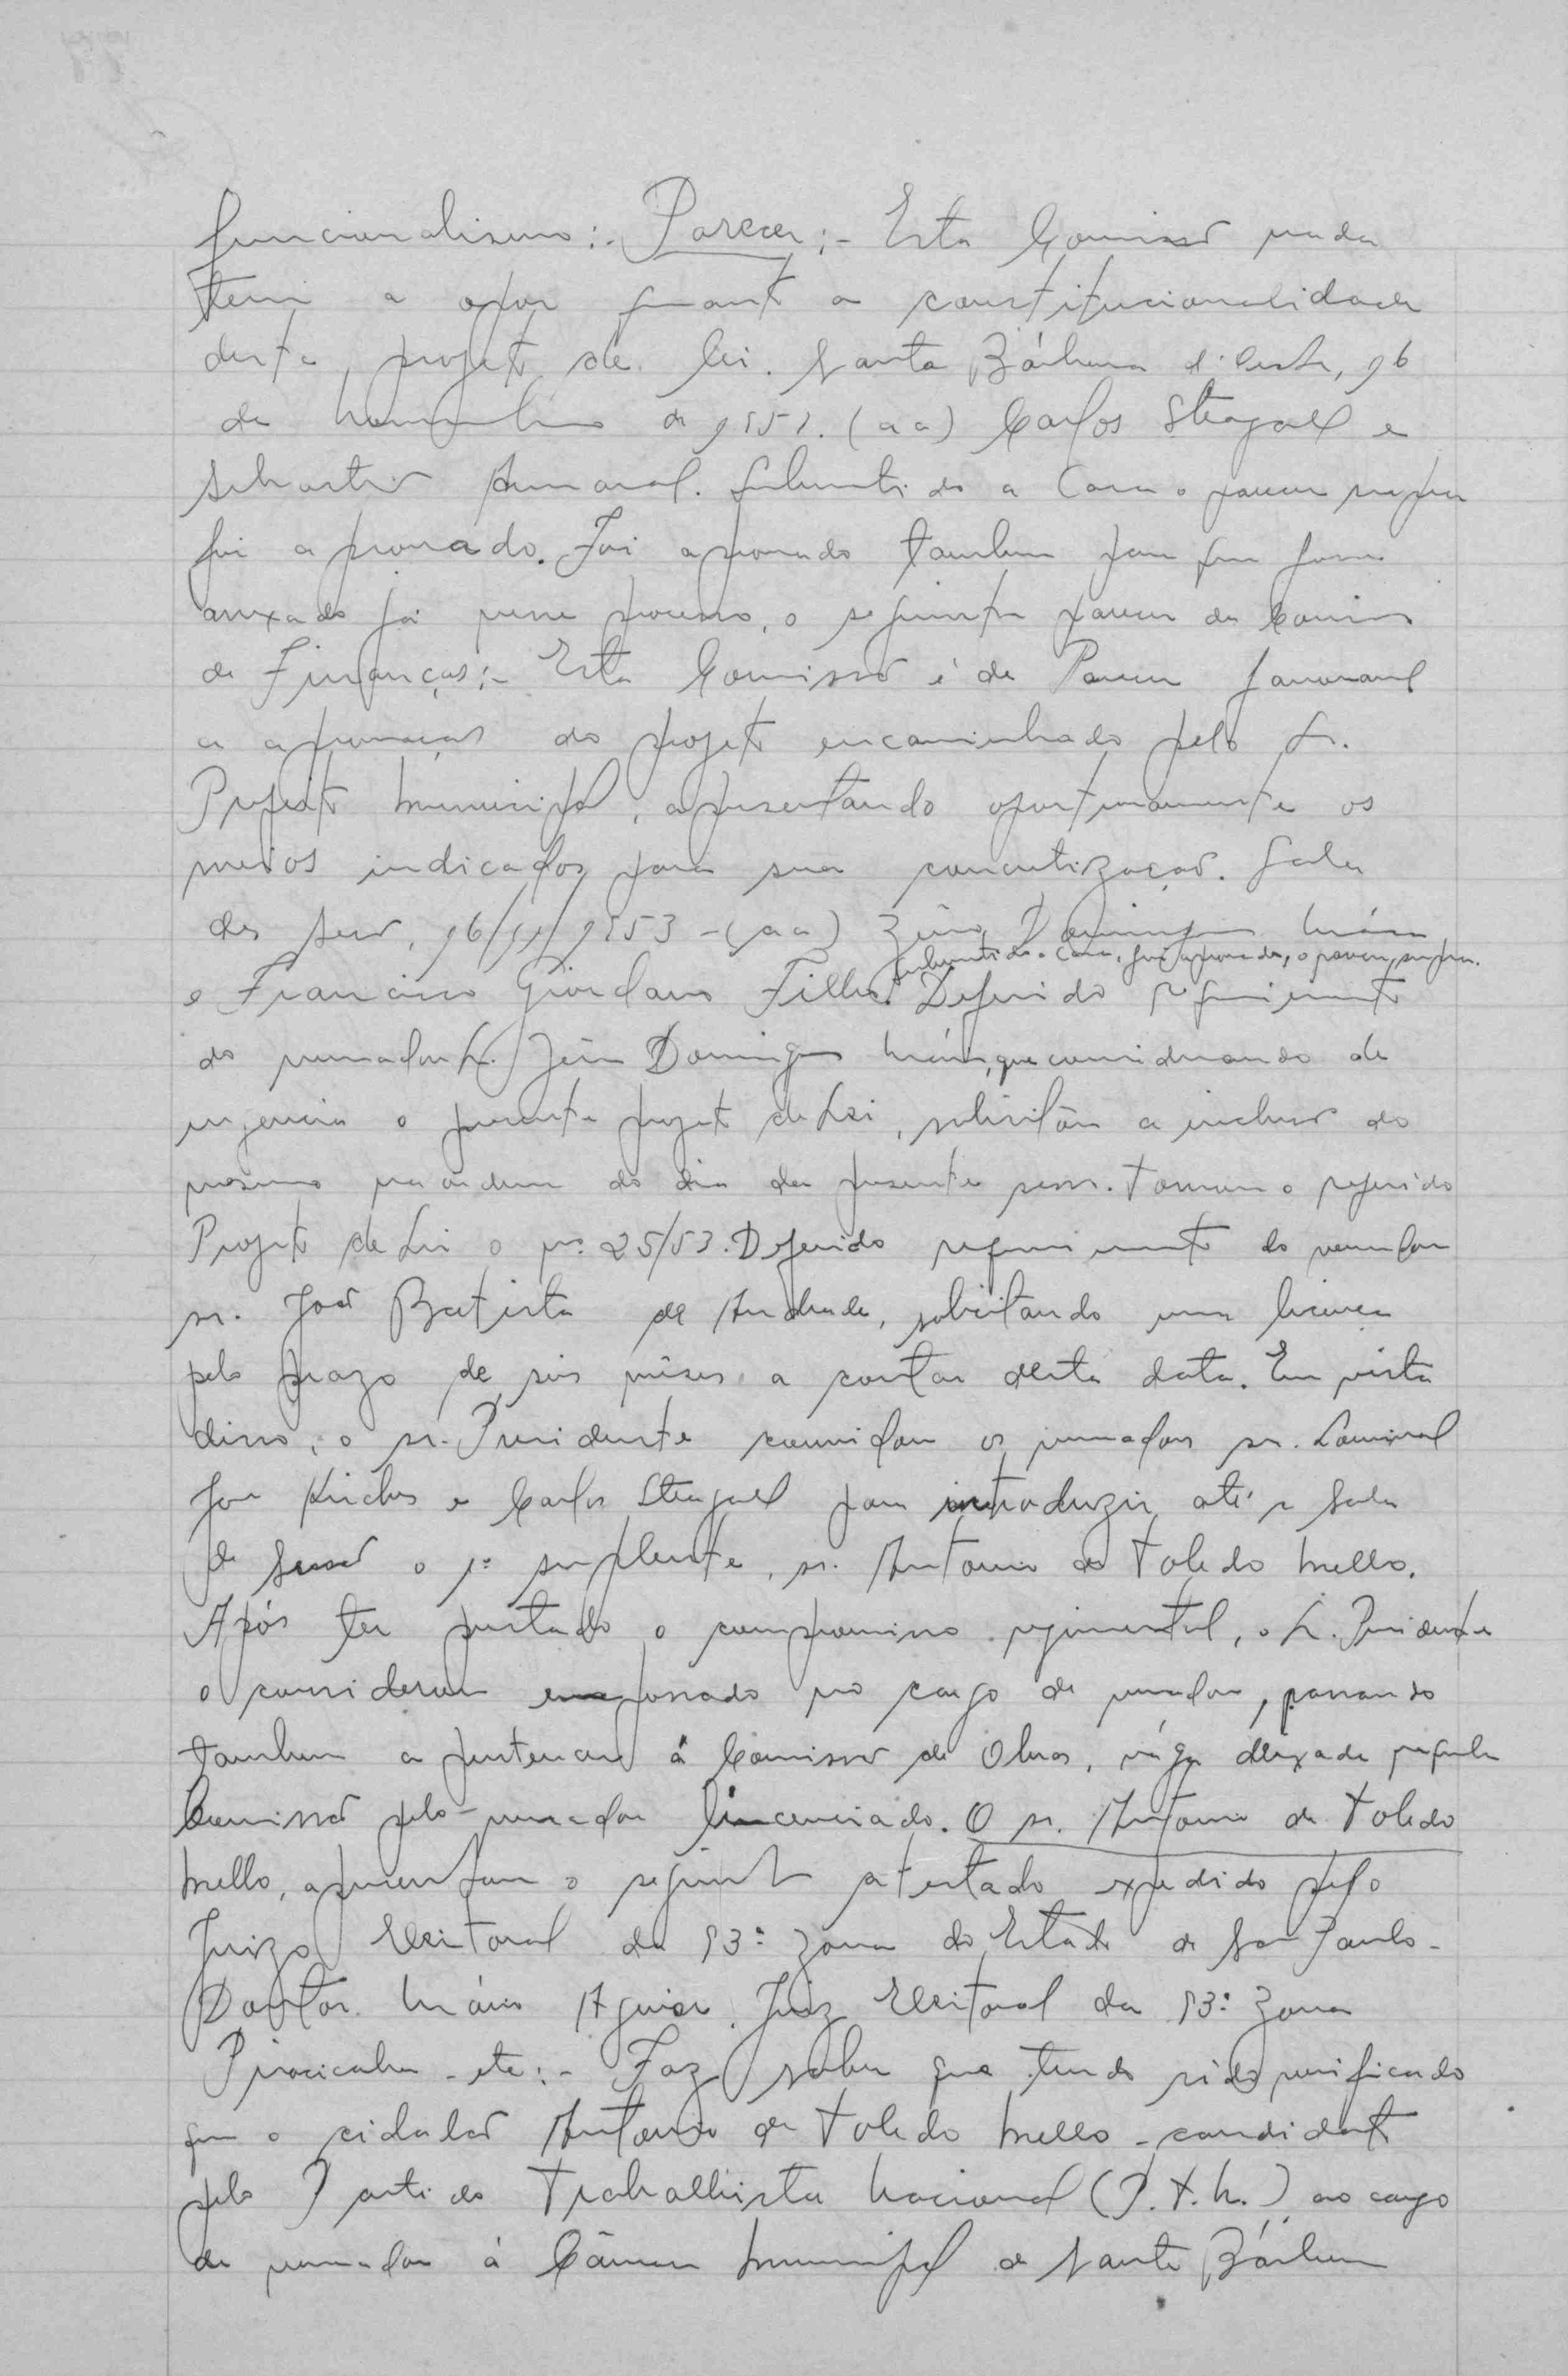 funcionalismo:- Parecer:- Esta Comissão nada
tem a opor quanto a constitucionalidade
deste projeto de lei. Santa Bárbara d'Oeste, 16
de novembro de 1953. (aa) Carlos Steagall e
Sebastião Amaral. Submetido a Casa o parecer supra
foi aprovado. Foi aprovado tambem para que fosse
anexado já nesse processo, o seguinte parecer da Comissão
de Finanças:- Esta Comissão é de Parecer favoravel
a aprovação do projeto encaminhado pelo Sr.
Prefeito Municipal, apresentando oportunamente os
meios indicados para sua concretização. Sala
das Sessões, 16/11/1953 - (aa) Zêno Domingues Maia
submetido a Casa, foi aprovado, o parecer, supra.
e Francisco Giordano Filho. Deferido requerimento
do vereador Sr. Zêno Domingues Maia, que considerando de
urgencia o presente projeto de Lei, solicitou a inclusão do
mesmo na ordem do dia da presente sessão. Tomou o referido
Projeto de Lei o nº 25/53. Deferido requerimento do vereador
sr. João Batista de Andrade, solicitando uma licença
pelo prazo de seis mêses a contar desta data. Em vista
disso, o sr. Presidente convidou os vereadores sr.
José e Carlos Steagall para introduzir até a Sala
de Sessão o 1º suplente, sr. Antonio de Toledo Mello.
Após ter prestado o compromisso regimental, o Sr. Presidente
o considerou empossado no cargo de vereador, passando
tambem a pertencer á Comissão de Obras, vága deixada naquela
Comissão pelo vereador lincenciado. O sr. Antonio de Toledo
Mello, apresentou o seguinte atestado expedido pelo
Juizo Eleitoral da 93ª zona do Estado de São Paulo -
Doutor Mário Aguiar, Juiz Eleitoral da 93ª Zona
Piracicaba - etc:- Faz saber que tendo sido verificado
que o cidadão Antonio de Toledo Mello - candidato
pelo Partido Trabalhista Nacional (P.T.N.) ao cargo
de vereador á Câmara Municipal de Santa Bárbara